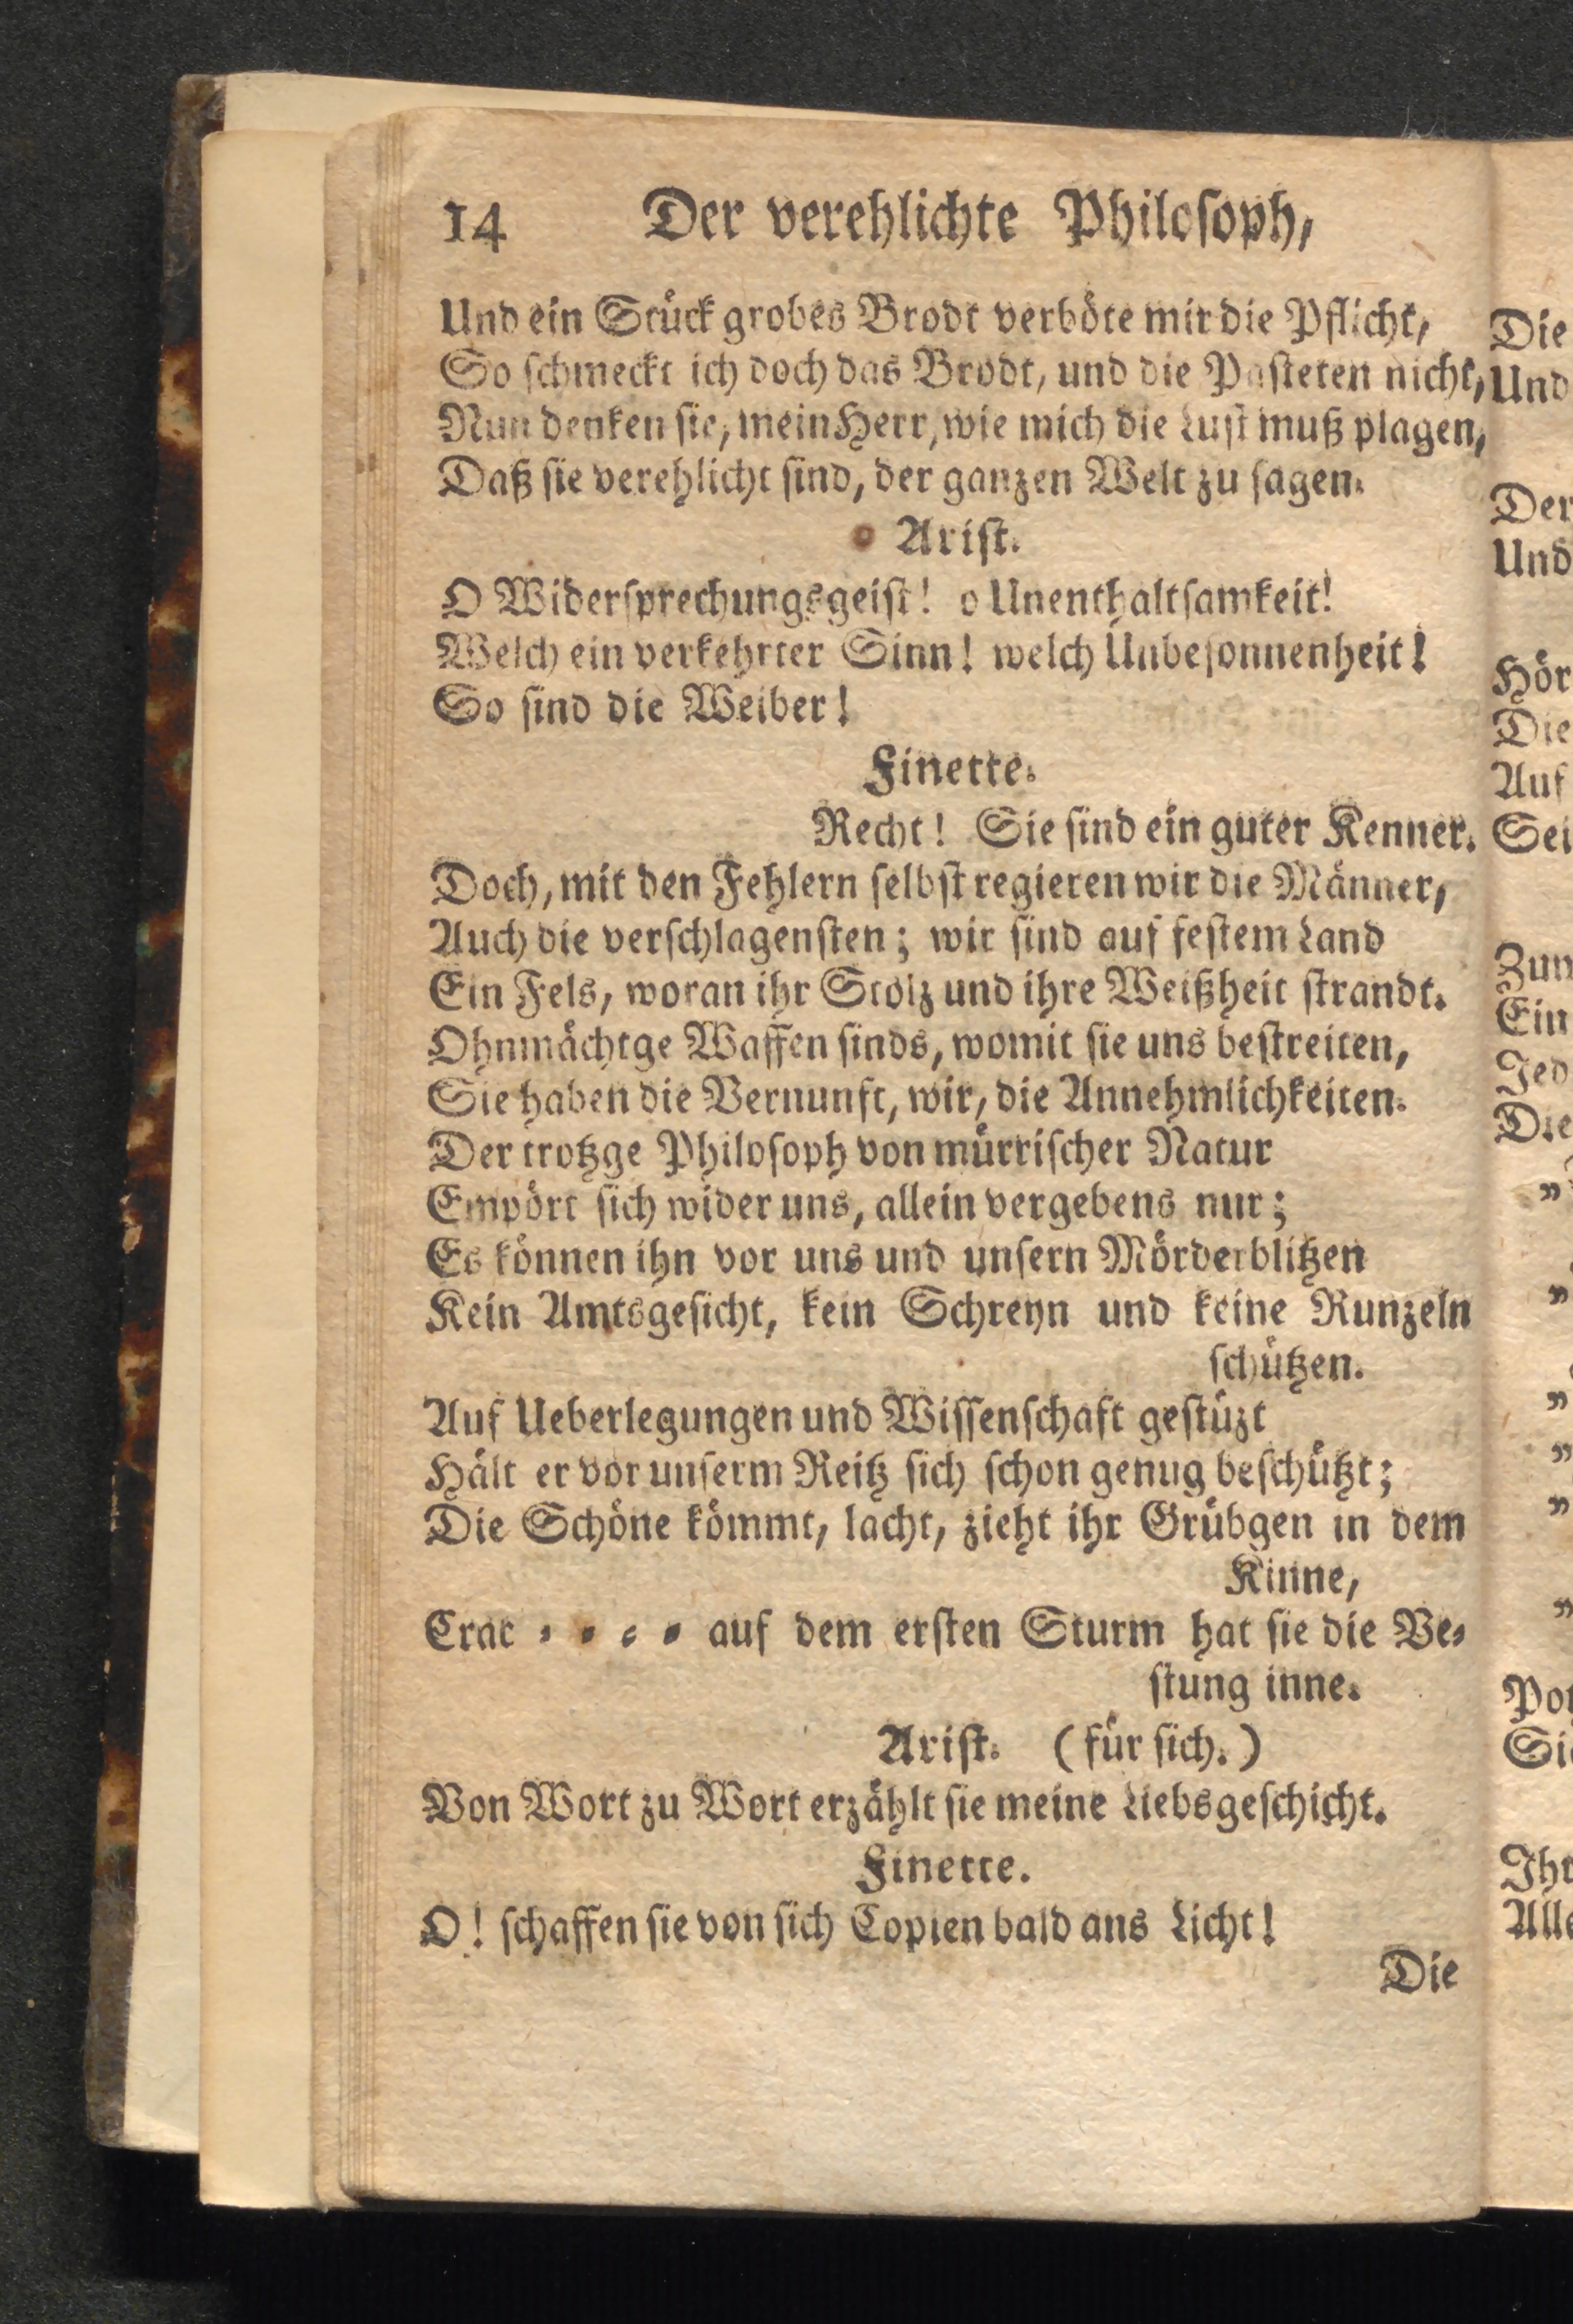 14 Der verehlichte Philosoph,
Und ein Stück grobes Brodt verböte mir die Pflicht,
So schmeckt ich doch das Brodt, und die Pasteten nicht,
Nun denken sie, mein Herr, wie mich die Lust muß plagen,
Daß sie verehlicht sind, der ganzen Welt zu sagen.
Arist.
O Widersprechungsgeist! o Unenthaltsamkeit!
Welch ein verkehrter Sinn! welch Unbesonnenheit!
So sind die Weiber!
Finette.
Recht! Sie sind ein guter Kenner.
Doch, mit den Fehlern selbst regieren wir die Männer,
Auch die verschlagensten; wir sind auf festem Land
Ein Fels, woran ihr Stolz und ihre Weißheit strandt.
Ohnmächtge Waffen sinds, womit sie uns bestreiten,
Sie haben die Vernunft, wir, die Annehmlichkeiten.
Der trotzge Philosoph von mürrischer Natur
Empört sich wider uns, allein vergebens nur;
Es können ihn vor uns und unsern Mörderblitzen
Kein Amtsgesicht, kein Schreyn und keine Runzeln
schützen.
Auf Ueberlegungen und Wissenschaft gestüzt
Hält er vor unserm Reitz sich schon genug beschützt;
Die Schöne kömmt, lacht, zieht ihr Grübgen in dem
Kinne,
Crac = = = = auf dem ersten Sturm hat sie die Ve=
stung inne.
Arist. (für sich.)
Von Wort zu Wort erzählt sie meine Liebsgeschicht.
Finette.
O! schaffen sie von sich Copien bald ans Licht!
Die
Die
Und
Der
Und
Hör
Die
Auf
Sei
Zum
Ein
Jed
Die
„
„
„
„
„
„
Pot
Sie
Ihr
Alle